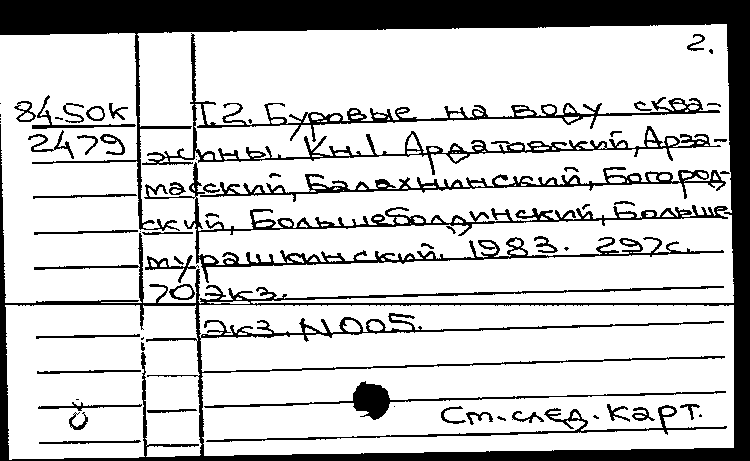 2.
84-50к Т.2. Буровые на воду сква-
2479 жины. Кн.1. Ардатовский, Арза-
масский, Балахнинский, Богород-
ский, Большеболдинский, Больше-
мурашкинский. 1983. 297с.
70 экз.
Экз. N005.
ŏ См.след.карт.